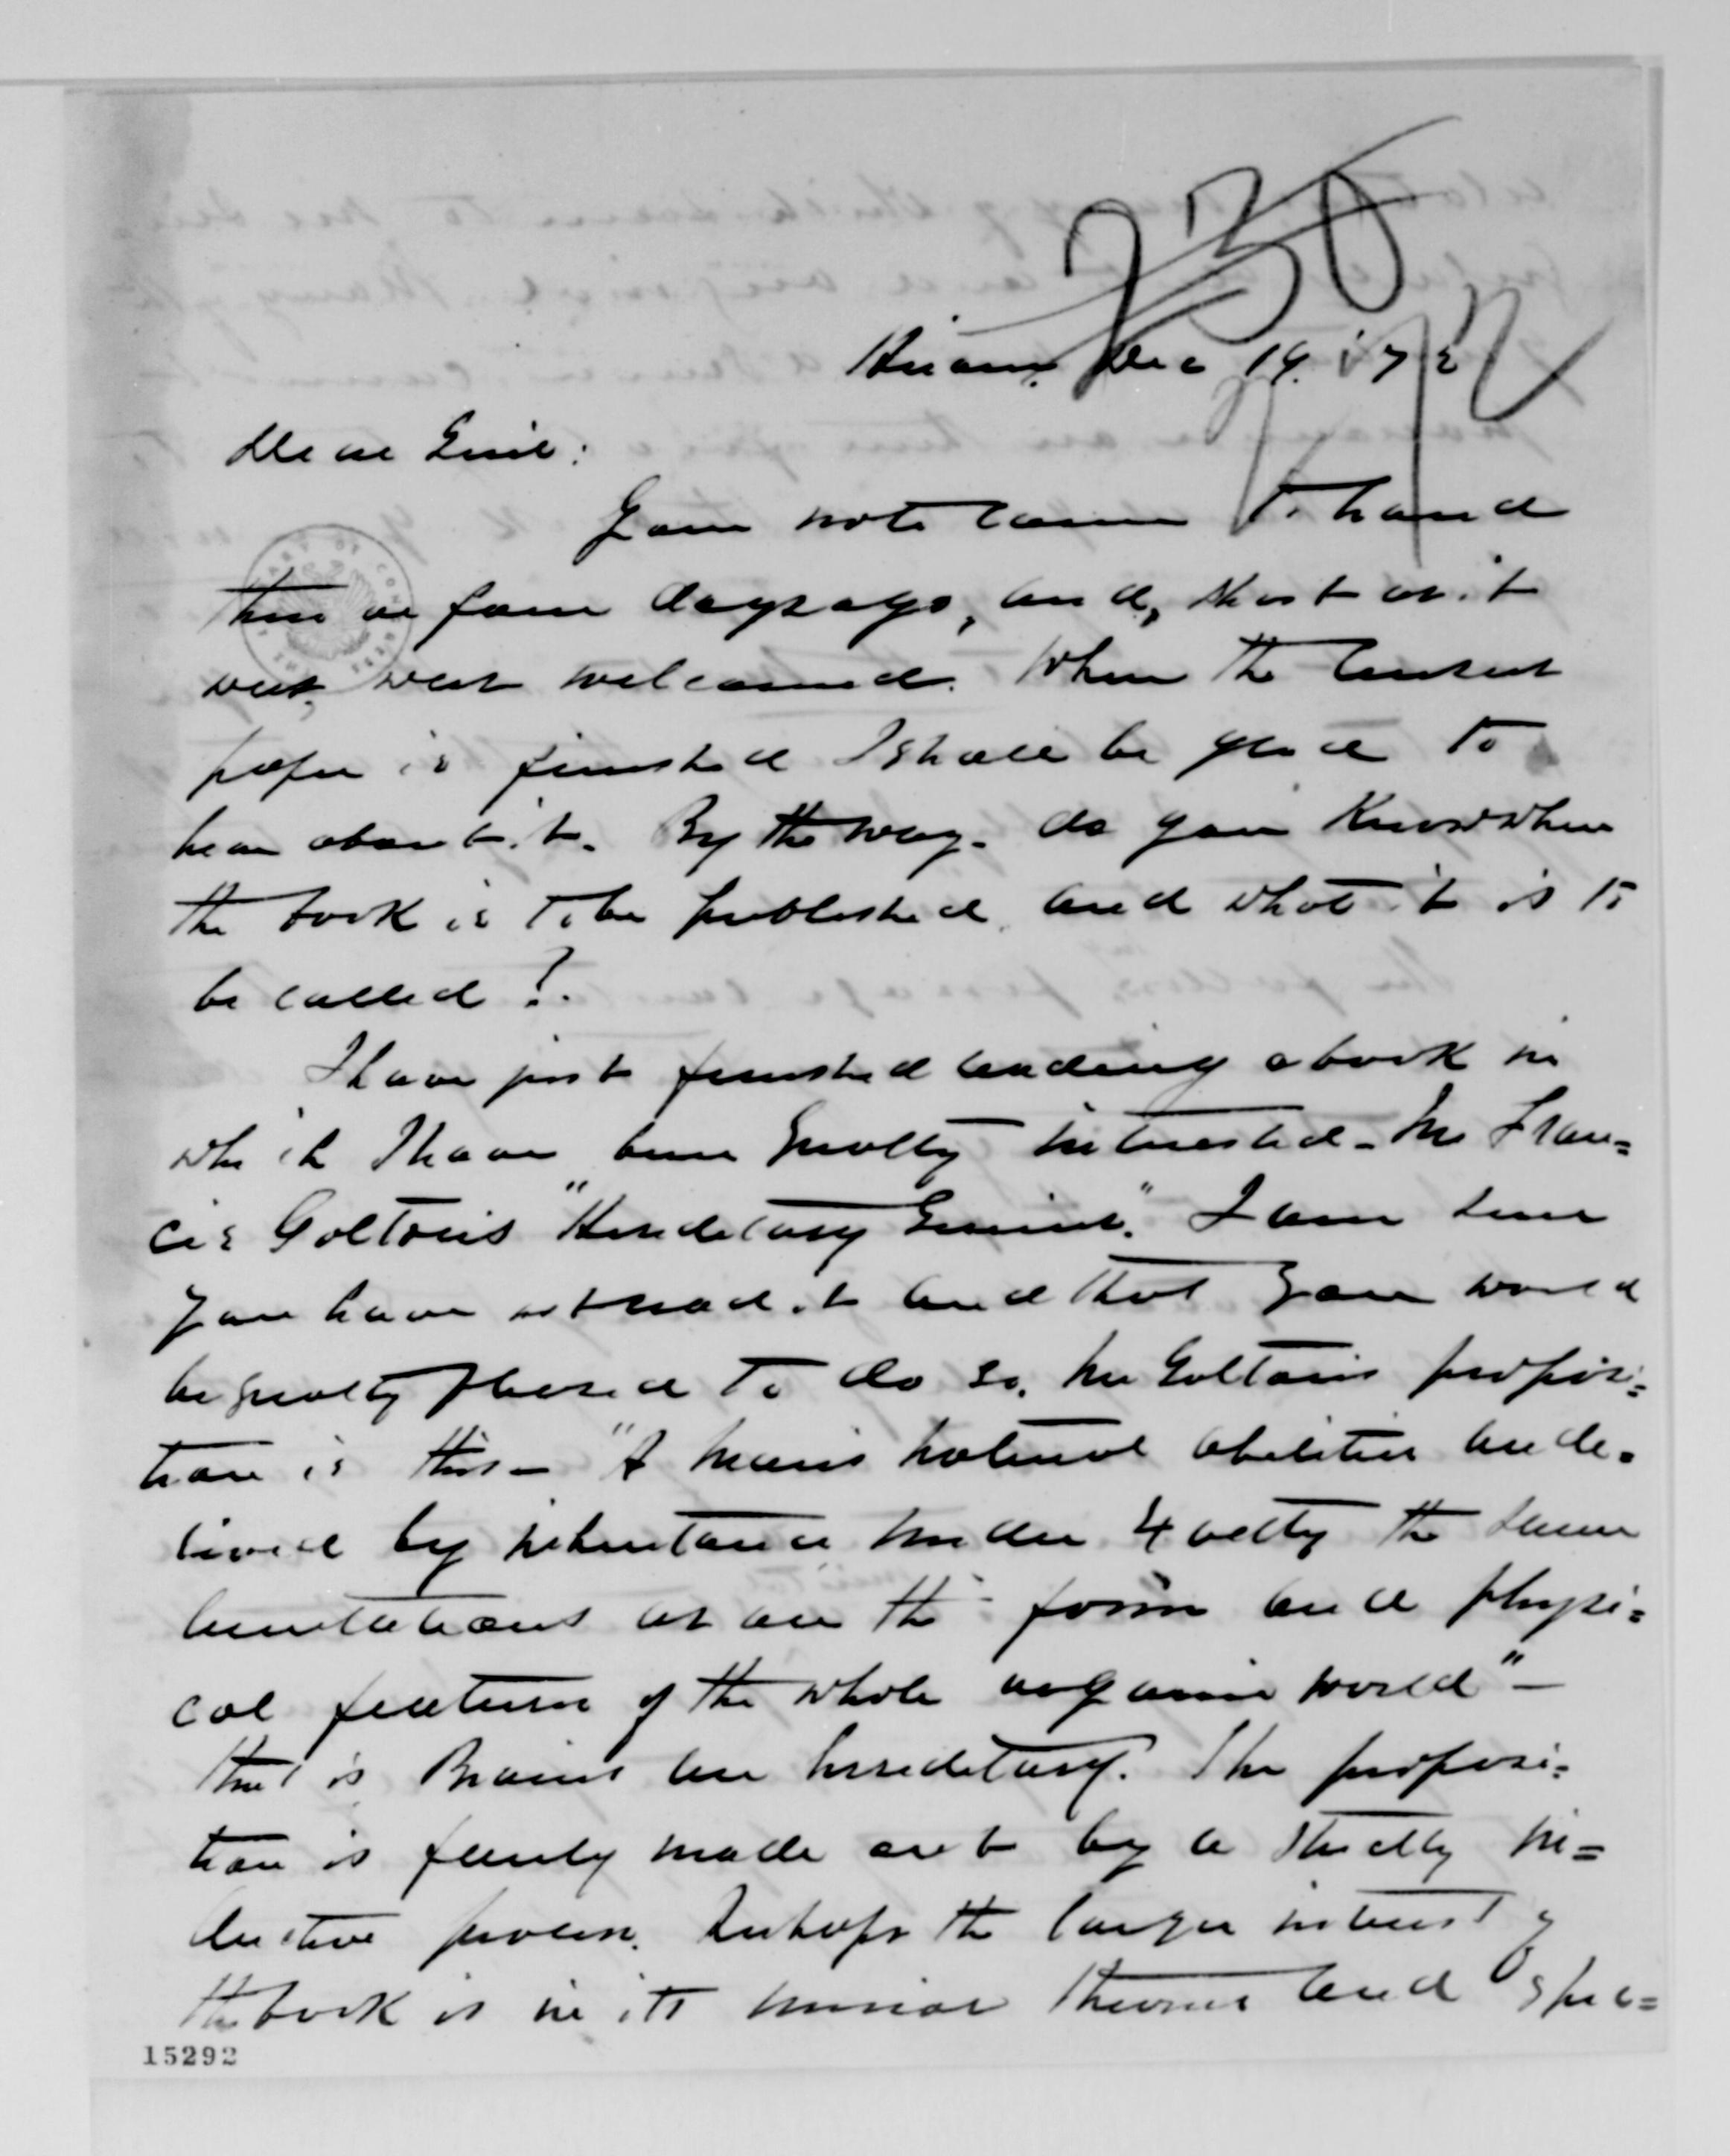 230
Hiram, Dec 14. 1872
Dear Genl:
Your note came to hand
three or four days ago, and, short as it
was, was welcomed. When the Census
paper is finished I shall be glad to
hear about it. By the way. do you know when
the book is to be published, and what it is to
be called?
I have just finished reading a book in
which I have been greatly interested - Mr Fran=
cis Galton's "Hereditary Genius." I am sure
you have not read it and that you would
be greatly pleased to do so. Mr Galton's proposi=
tion is this - "A man's natural abilities are de=
rived by inheritance under exactly the same
limitations as are the form and physi=
cal features of the whole organic world" -
that is Brains are hereditary. The proposi=
tion is fairly made out by a strictly in=
ductive process. Perhaps the larger interest of
the book is in its minor theories and spec=
15292